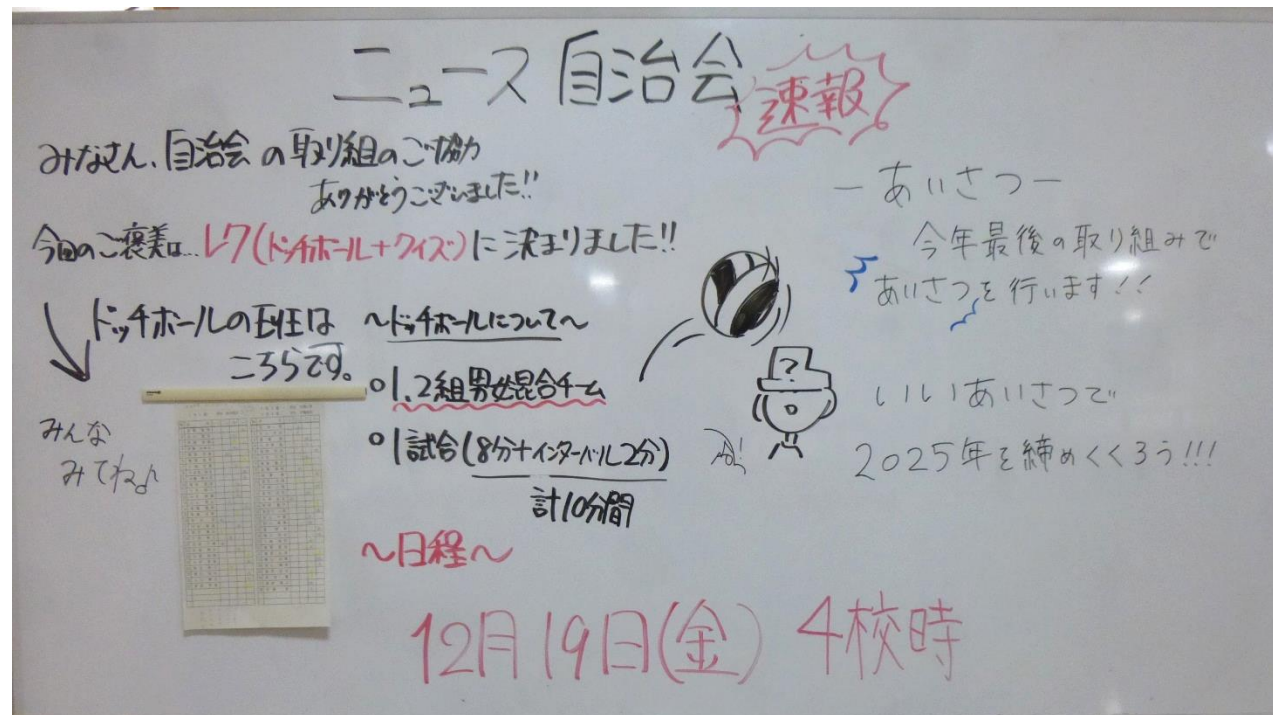 ニュース自治会 速報
みなさん、自治会の取り組のご協力
ありがとうございました!!
今回のご褒美は…レク(ドッチボール+クイズ)に決まりました!!
ドッチボールの班は
こちらです。
みんな
みてね♪
~ドッチボールについて~
○1,2組男女混合チーム
○1試合(8分+インターバル2分)
計10分間
~日程~
12月19日(金) 4校時
?
ーあいさつー
今年最後の取り組みで
あいさつを行います!!
いいあいさつで
2025年を締めくくろう!!!